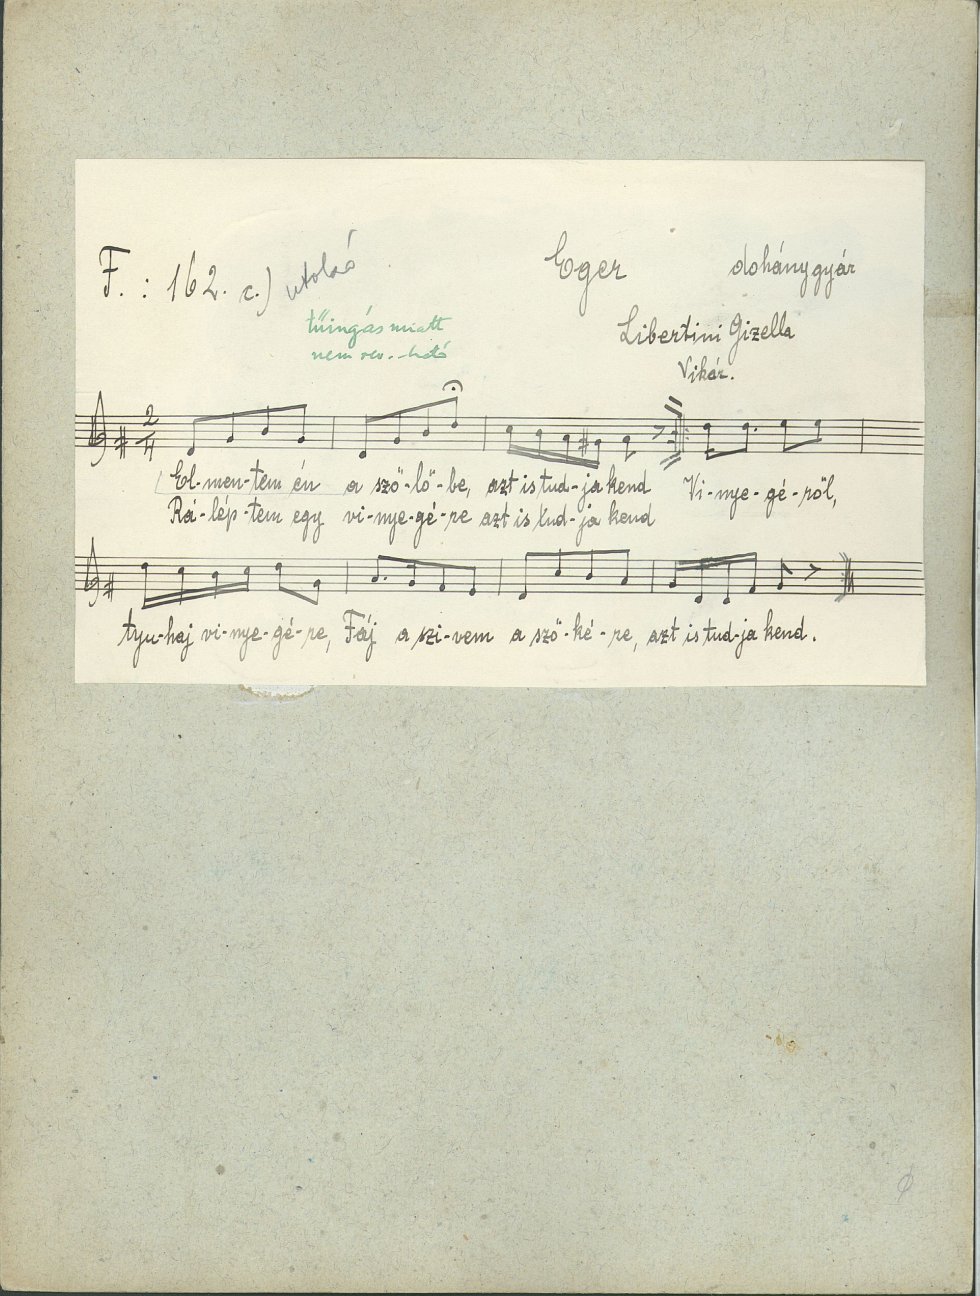 F. : 162. c.) utolsó
Eger dohánygyár
tűingás miatt
nem rev. -ható
Libertini Gizella
Vikár.
2
4
El-men-tem én a sző-lő-be, azt is tud-ja kend Vi-nye-gé-ről,
Rá-lép-tem egy vi-nye-gé-re azt is tud-ja kend
tyu-haj vi-nye-gé-re, Fáj a szi-vem a sző-ké-re, azt is tud-ja kend.